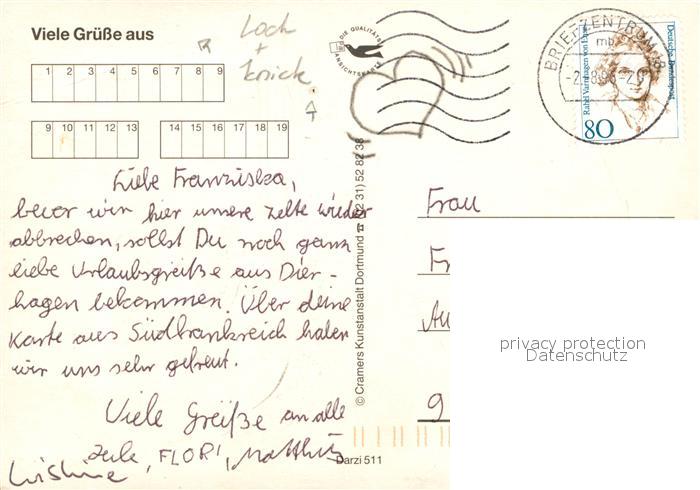 Viele Grüße aus
Loch
+
knick
1 2 3 4 5 6 7 8 9
9 10 11 12 13
14 15 16 17 18 19
DIE QUALITÄTS
ANSICHTSKARTE
BRIEFZENTRUM 18
mb
80
Rahel Varnhagen von Ense
Deutsche Bundespost
Liebe Franziska,
bevor wir hier unsere Zelte wieder
abbrechen, sollst Du noch ganz
liebe Urlaubsgrüße aus Dier-
hagen bekommen. Über deine
Karte aus Südfrankreich haben
wir uns sehr gefreut.
Viele Grüße an alle
FLORI, Matthias
© Cramers Kunstanstalt Dortmund ☎ (02 31) 52 82 38
Darzi 511
Frau
Fr
Au
9
privacy protection
Datenschutz